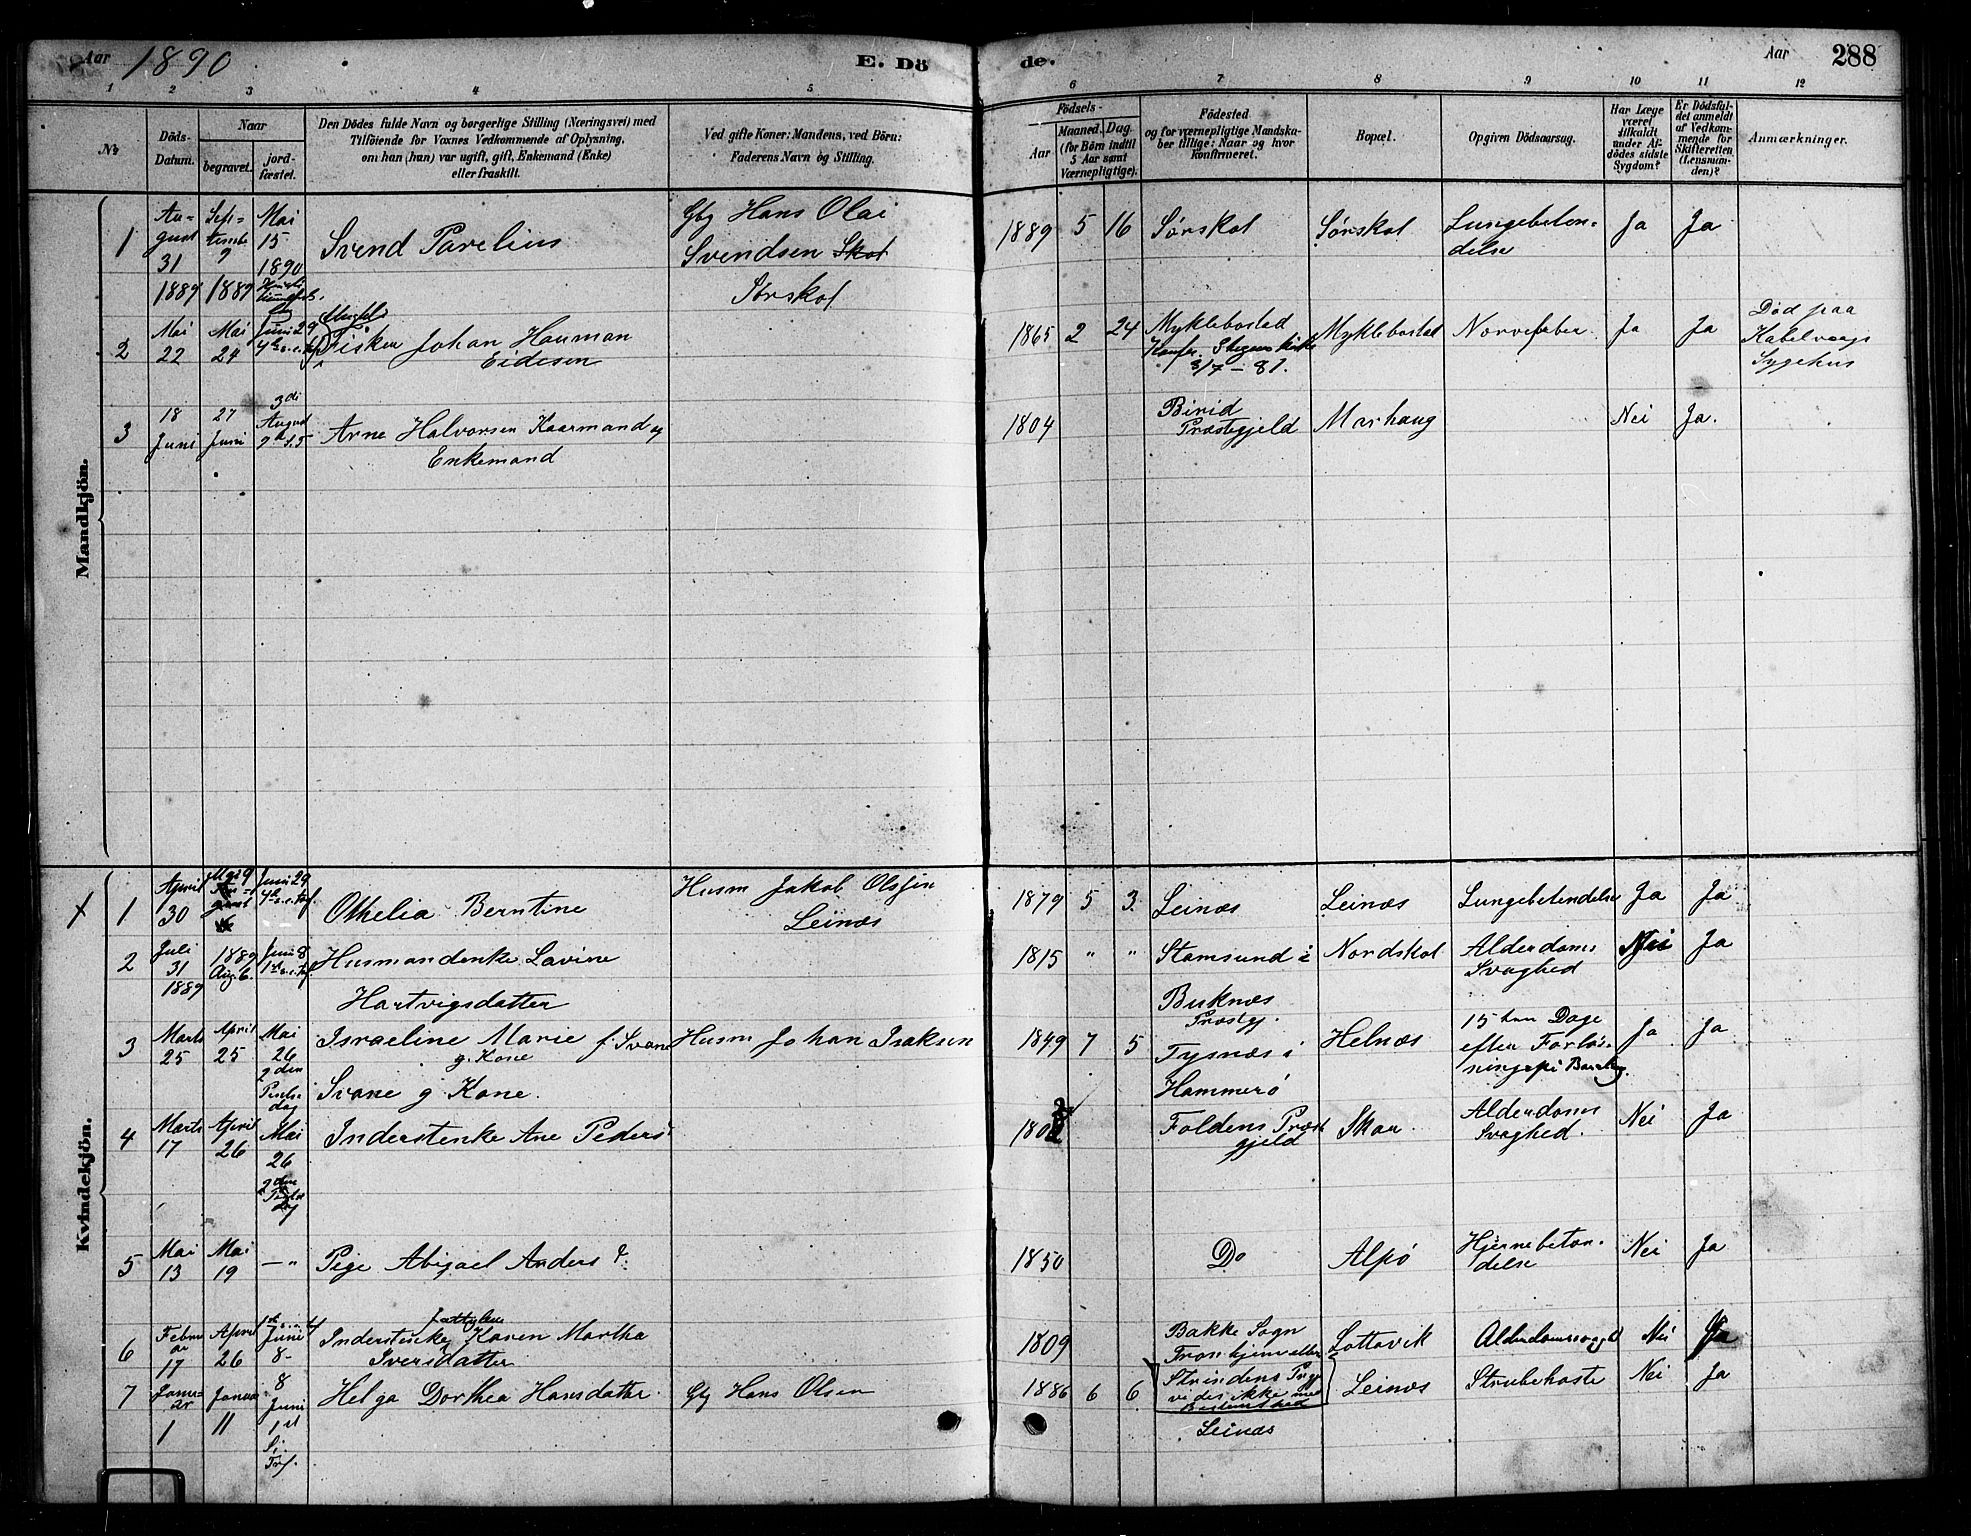 Aar 1890 E. Dö de. Aar 288
1 2 3 4 5 6 7 8 9 10 11 12
№
Döds-Datum.
Naar
begravet.
jord-fæstet.
Den Dödes fulde Navn og borgerlige Stilling (Næringsvei) med
Tilföiende for Voxnes Vedkommende af Oplysning,
om han (hun) var ugift, gift, Enkemand (Enke)
eller fraskilt.
Ved gifte Koner: Mandens, ved Börn:
Faderens Navn og Stilling.
Födsels-
Aar
Maaned. Dag.
(for Börn indtil
5 Aar samt
Værnepligtige).
Födested
og for værnepligtige Mandska-
ber tillige: Naar og hvor
konfirmeret.
Bopæl.
Opgiven Dödsaarsag.
Har Læge
været
tilkaldt
under Af-
dödes sidste
Sygdom?
Er Dödsfal-
det anmeldt
af Vedkom-
mende for
Skifteretten
(Lensman-
den)?
Anmærkninger.
Mandkjön.
1 August 31 1889 September 9 1889 Mai 15 1890 Svend Parelius Gbg Hans Olai Svendsen Skot Sørskot 1889 5 16 Sørskot Sørskot Lungebeten-delse Ja Ja
2 Mai 22 Mai 24 Juni 29 Fisker Johan Hauman Eidesen 1865 2 24 Myklebostad Konfir. Stegens Kirke 3/7 - 81. Myklebostad Nervefeber Ja Ja Død paa Kabelvaags Sygehus
3 18 Juni 27 Juni 3di August Arne Halvorsen Kaarmand og Enkemand 1804 Birid Præstegjeld Marhaug Nei Ja.
Kvindekjön.
1 April 30 Mai 9 Juni 29 Othelia Berntine Husm Jakob Olsen Leinæs 1879 5 3 Leinæs Leinæs Lungebetendelse Ja Ja
2 Juli 31 1889 1889 Aug. 6. Juni 8 Husmandenke Lavine Hartvigsdatter 1815 " " Stamsund i Buknæs Præstgj. Nordskot Alderdoms Svaghed Nei Ja
3 Marts 25 April 25 Mai 26 2den Pintsedag Israeline Marie f. Svane g. Kone Husm Johan Isaksen 1849 7 5 Tysnæs i Hammerø Helnæs 15 Dage efter Ja Ja
Svane g Kone.
4 Marts 17 April 26 Mai 26 2den Inderstenke Ane Peders Foldens Præstgjeld Skar Alderdoms Svaghed. Nei Ja
5 Mai 13 Mai 19 — " Pige Abigael Anders d. 1850 Do Alpø Hjernebeten-delse Nei Ja
6 Februar 17 April 26 Juni 8 Inderstenke Karen Martha Iversdatter 1809 Bakke Sogn Tronhjem eller Strindens Prgj vides ikke med Bestemthed Lottavik Alderdomssvaghed Nei Ja
7 Januar 1 Januar 11 8 Juni 1st S. Trf. Helga Dorthea Hansdatter Gbg Hans Olsen 1886 6 6 Leinæs Leinæs Strubehoste Nei Ja